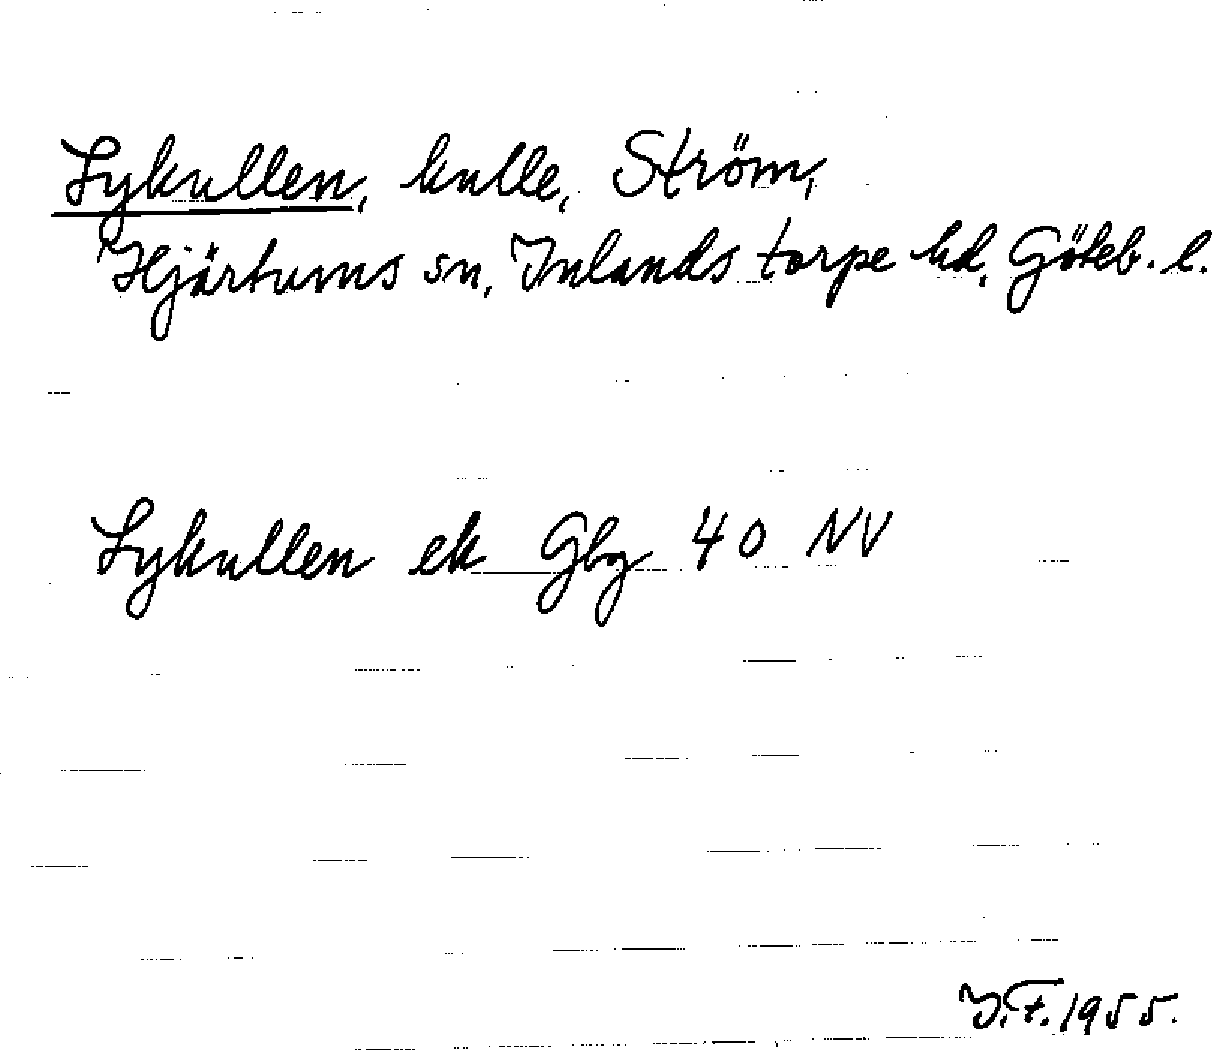 Lykullen, kulle, Ström,
Hjärtums sn, Inlands torpe hd, Göteb. l.
Lykullen ek Gbg 40 NV
I.F. 1955.